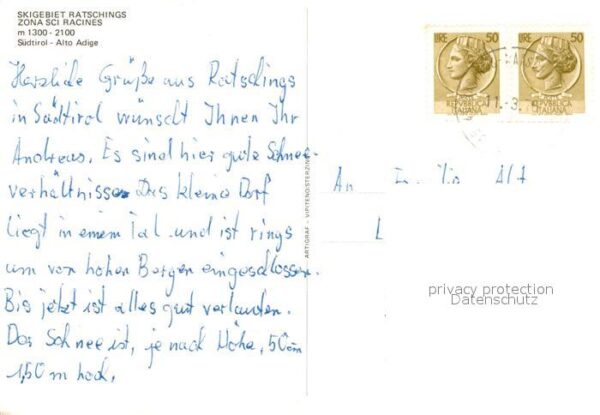 SKIGEBIET RATSCHINGS
ZONA SCI RACINES
m 1300 - 2100
Südtirol - Alto Adige
Herzliche Grüße aus Ratschings
in Südtirol wünscht Ihnen Ihr
Andreas. Es sind hier gute Schnee-
verhältnisse. Das kleine Dorf
liegt in einem Tal und ist rings
um von hohen Bergen eingeschlossen.
Bis jetzt ist alles gut verlaufen.
Der Schnee ist, je nach Höhe, 50 cm
1,50 m hoch.
ARTIGRAF - VIPITENO/STERZING
LIRE 50
REPVBBLICA
ITALIANA
LIRE 50
REPVBBLICA
ITALIANA
11.-3.
An Alt
L
privacy protection
Datenschutz